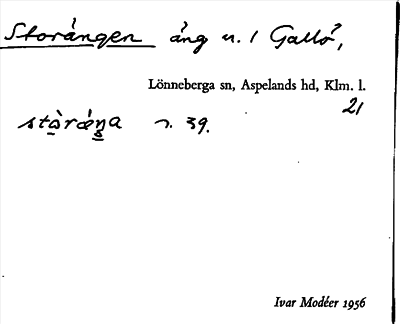 Storängen äng u. / Gallö,
Lönneberga sn, Aspelands hd, Klm. l.
21
n. 39.
Ivar Modéer 1956